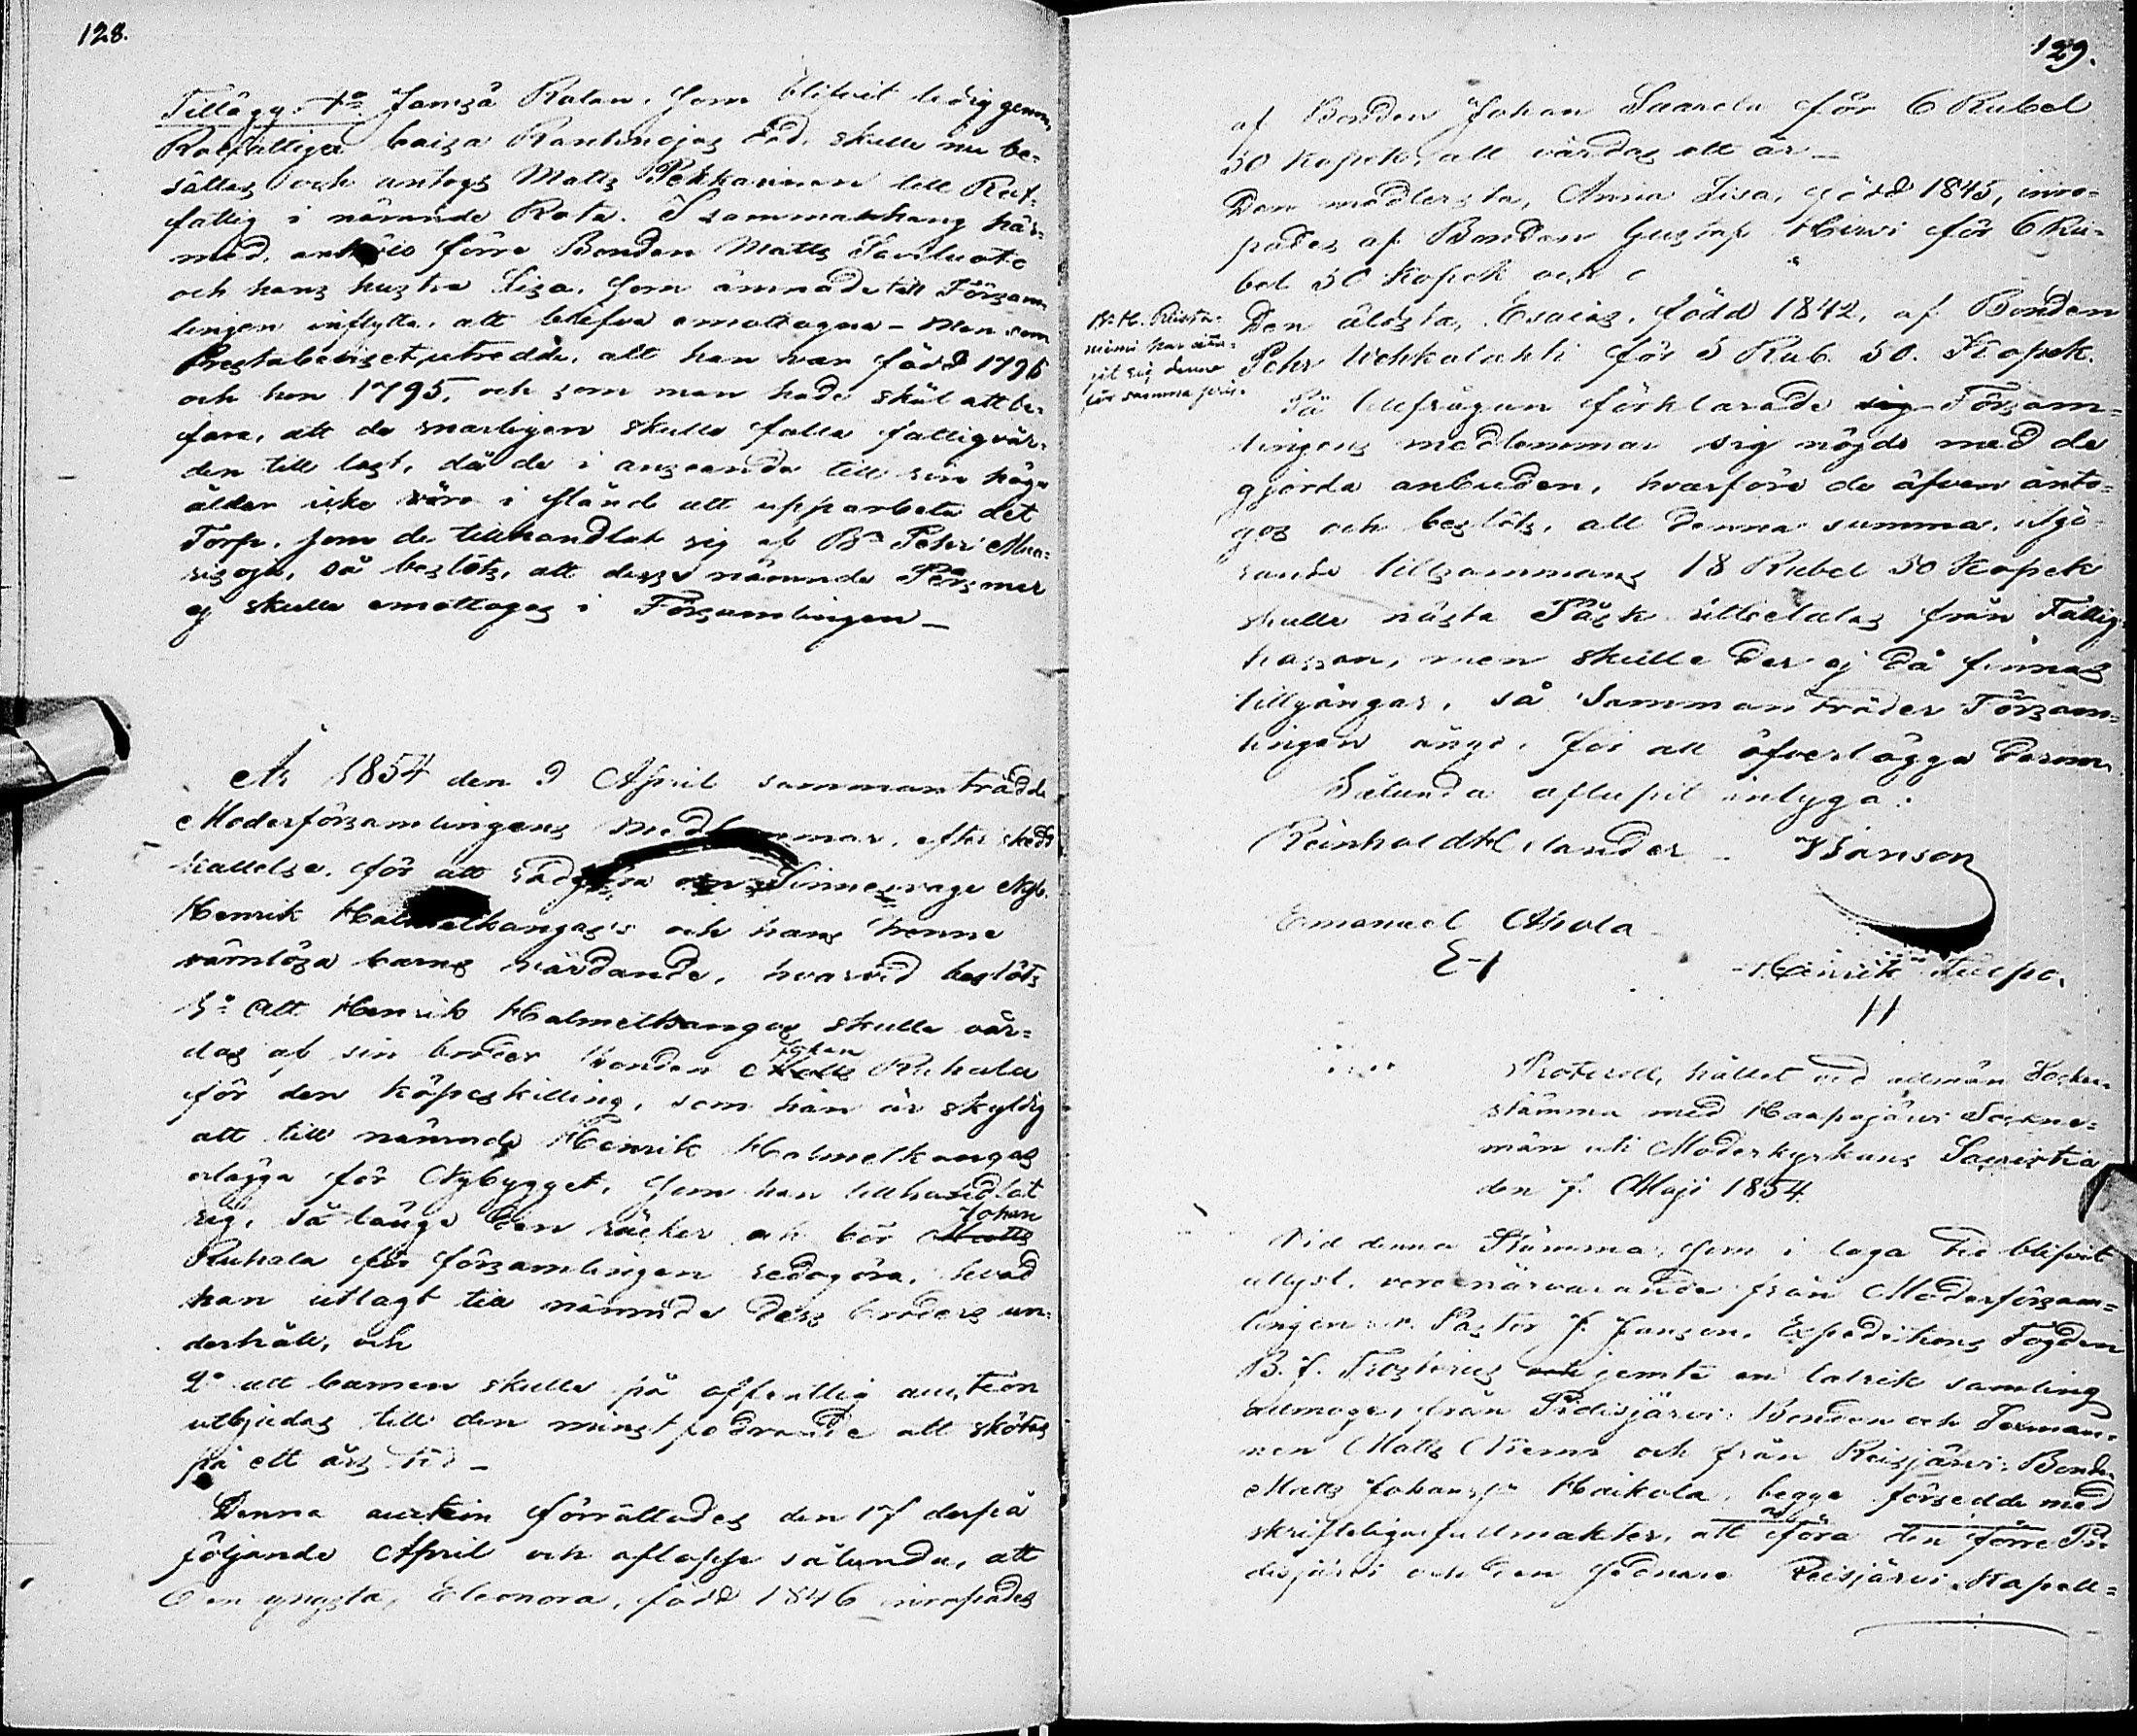 128.
Tillägg. 4o Jamsä Rotan, som blifvit ledig genom
Rotfattiga Caisa Rantinojas död, skulle nu be-
sättas och antogs Matts Pekkarinen till Rot-
fattig i nämnde Rota. I sammanhang här-
med, förre Bonden Matts Saviluoto
och hans hustru Lisa, som ämnade till Försam-
lingen inflytta, att blifva emottagne - Men som
Prestabeviset utredde, att han var född 1796
och hon 1795, och som man hade skäl att be-
fara, att de snarligen skulle falla fattigvår-
den till last, då de i anseende till sin höga
ålder icke vore i stånd att upparbeta det
Torp, som de tillhandlat sig af Bn Pehr
så beslöts, att desse nämnde Personer
ej skulle emottagas i Församlingen -
År 1854 den 9 April sammanträdde
Moderförsamlingens medlemmar, efter skedd
kallelse, för att rådgöra om Sinnesvage Nyb.
Henrik Halmetkangas's och hans trenne
värnlösa barns vårdande, hvarvid beslöts
1o Att Henrik Halmetkangas skulle vår-
das af sin broder Bonden Matts Johan Ruhala
för den köpeskilling, som han är skyldig
att till nämnde Henrik Halmetkangas
erlägga för Nybygget, som han tillhandlat
sig, så länge den räcker och bör Matts Johan
Ruhala för församlingen redogöra, hvad
han utlagt till nämnde dess broders un-
derhåll, och
2o att barnen skulle på offentlig auction
utbjudas till den minstfodrande att skötas
på ett års tid -
Denna auction förrättades den 17 derpå
följande April och aflopp sålunda, att
Den yngsta, Eleonora, född 1846 inropades
129.
af Bonden Johan Saarela för 6 Rubel
50 Kopek, att vårdas ett år -
Den medlersta, Anna Lisa, född 1845, inro-
pades af Bonden Gustaf Hirvi för 6 Ru-
bel 50 Kopek och
Den äldsta, Esaias, född 1842, af Bonden
Pehr Uchkalahti för 5 Rub. 50. Kopek.
N. H. Ristaniemi har
sig denne
för samma pris.
På tillfrågan förklarade sig Försam-
lingens medlemmar sig nöjde med de
gjorda anbuden, hvarföre de äfven anto-
gos och beslöts, att denna summa, utgö-
rande tillsammans 18 Rubel 50 Kopek
skulle nästa Påsk utbetalas från Fattig-
kassan, men skulle der ej då finnas
tillgångar, så Sammanträder Försam-
lingen ånyo, för att öfverlägga derom
Sålunda aflupit intyga:
Reinhold Helander - Janson
Emanuel Ahola
E-A
Henrik Autpo.
H
Protocoll, hållet vid allmän Socken-
stämma med Haapajärvi Sockne-
män uti Moderkyrkans Sacristia
den 7. Maji 1854.
Vid denna Stämma, som i laga tid blifvit
utlyst, voro närvarande från Moderförsam-
lingen v. Pastor J. Janson, Expeditions Fogden
B. J. jemte en talrik samling
allmoge, från Pidisjärvi Bonden och Sexman-
nen Matts Niemi och från Reisjärvi, Bonden
Matts Johansson Haikola, begge försedde med
skrifteliga fullmakter, att föra den förre Pi-
disjärvi och den sednare Reisjärvi Kapell-